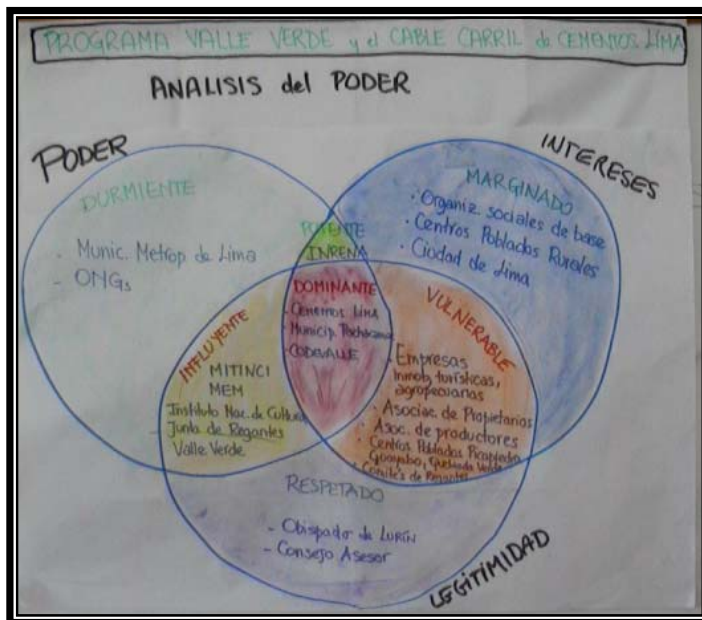 PROGRAMA VALLE VERDE y el CABLE CARRIL de CEMENTOS LIMA
ANALISIS del PODER
PODER
INTERESES
DURMIENTE
- Munic. Metrop de Lima
- ONGs
MARGINADO
· Organiz. sociales de base
· Centros Poblados Rurales
· Ciudad de Lima
POTENTE
INRENA
DOMINANTE
- Cementos Lima
- Municip. Pachacamac
- CODEVALLE
INFLUYENTE
MITINCI
MEM
Instituto Nac. de Cultura
Junta de Regantes
Valle Verde
VULNERABLE
- Empresas
Inmob, turísticas,
agropecuarias
· Asociac. de Propietarios
· Asoc. de productores
· Centros Poblados Picapiedra
Guayabo, Quebrada Verde
· Comités de Regantes
RESPETADO
- Obispado de LURÍN
- Consejo Asesor
LEGITIMIDAD